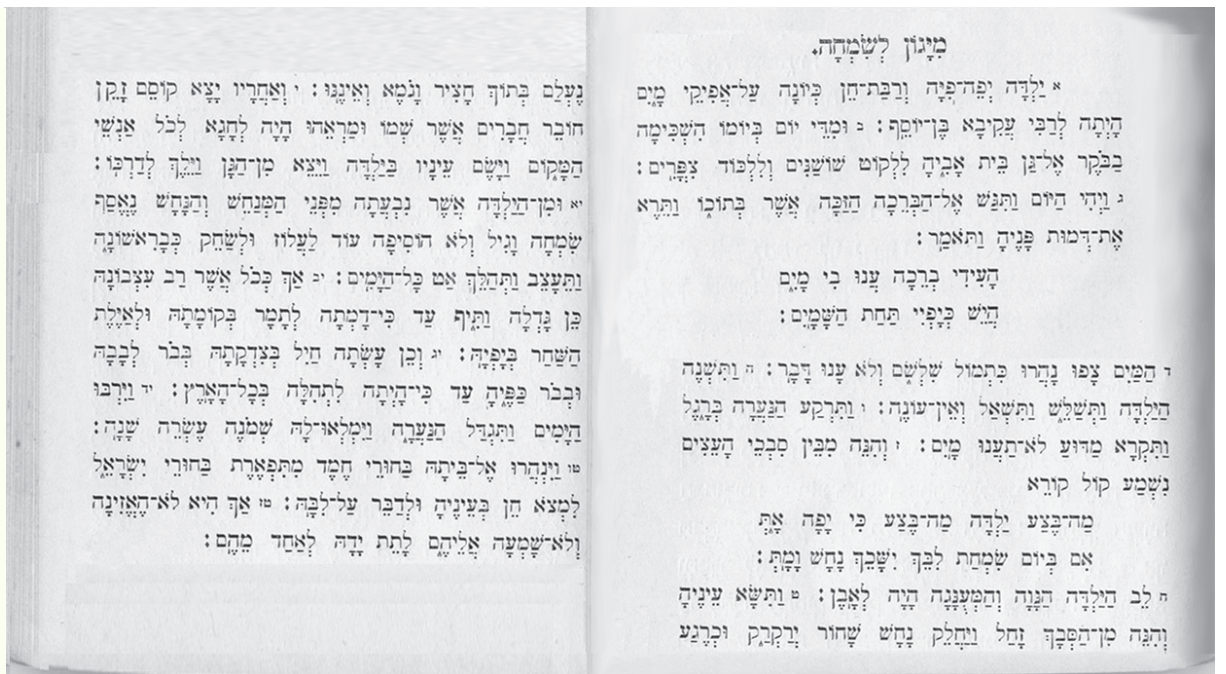 מִיָּגוֹן לְשִׂמְחָה.
א יַלְדָּה יְפֵה־פִיָּה וְרַבַּת־חֵן כְּיוֹנָה עַל־אֲפִיקֵי מַיִם
הָיְתָה לְרַבִּי עֲקִיבָא בֶּן־יוֹסֵף: ב וּמִדֵּי יוֹם בְּיוֹמוֹ הִשְׁכִּימָה
בַבֹּקֶר אֶל־גַּן בֵּית אָבִיהָ לִלְקוֹט שׁוֹשַׁנִּים וְלִלְכּוֹד צִפֳּרִים:
ג וַיְהִי הַיּוֹם וַתִּגַּשׁ אֶל־הַבְּרֵכָה הַזַּכָּה אֲשֶׁר בְּתוֹכוֹ וַתֵּרֶא
אֶת־דְּמוּת פָּנֶיהָ וַתֹּאמַר:
הָעִידִי בְרֵכָה עֲנוּ בִי מָיִם
הֲיֵשׁ כְּיָפְיִי תַּחַת הַשָּׁמָיִם:
ד הַמַּיִם צָפוּ נָהֲרוּ כִּתְמוֹל שִׁלְשֹׁם וְלֹא עָנוּ דָבָר: ה וַתִּשְׁנֶה
הַיַּלְדָּה וַתְּשַׁלֵּשׁ וַתִּשְׁאַל וְאֵין־עוֹנֶה: ו וַתִּרְקַע הַנַּעֲרָה בְּרָגֶל
וַתִּקְרָא מַדּוּעַ לֹא־תַעֲנוּ מָיִם: ז וְהִנֵּה מִבֵּין סִבְכֵי הָעֵצִים
נִשְׁמַע קוֹל קוֹרֵא
מַה־בֶּצַע יַלְדָּה מַה־בֶּצַע כִּי יָפָה אָתְּ
אִם בְּיוֹם שִׂמְחַת לִבֵּךְ יִשָּׁכֵךְ נָחָשׁ וָמַתְּ:
ח לֵב הַיַּלְדָּה הַנָּוָה וְהַמְעֻנָּגָה הָיָה לְאָבֶן: ט וַתִּשָּׂא עֵינֶיהָ
וְהִנֵּה מִן־הַסְּבַךְ זָחַל וַיֵּחָלֵק נָחָשׁ שָׁחוֹר יְרַקְרַק וּכְרֶגַע
נֶעְלַם בְּתוֹךְ חָצִיר וָגֹמֶא וְאֵינֶנּוּ: י וְאַחֲרָיו יָצָא קוֹסֵם זָקֵן
חוֹבֵר חֲבָרִים אֲשֶׁר שְׁמוֹ וּמַרְאֵהוּ הָיָה לְחָגָּא לְכֹל אַנְשֵׁי
הַמָּקוֹם וַיָּשֶׂם עֵינָיו בַּיַּלְדָּה וַיֵּצֵא מִן־הַגָּן וַיֵּלֶךְ לְדַרְכּוֹ:
יא וּמִן־הַיַּלְדָּה אֲשֶׁר נִבְעֲתָה מִפְּנֵי הַמְנַחֵשׁ וְהַנָּחָשׁ נֶאֱסַף
שִׂמְחָה וָגִיל וְלֹא הוֹסִיפָה עוֹד לַעֲלוֹז וּלְשַׂחֵק כְּבָרִאשׁוֹנָה
וַתֵּעָצֵב וַתְּהַלֵּךְ אַט כָּל־הַיָּמִים: יב אַךְ כְּכֹל אֲשֶׁר רַב עִצְּבוֹנָהּ
כֵּן גָּדְלָה וַתִּיף עַד כִּי־דָמְתָה לְתָמָר בְּקוֹמָתָהּ וּלְאַיֶּלֶת
הַשַּׁחַר בְּיָפְיָהּ: יג וְכֵן עָשְׂתָה חַיִל בְּצִדְקָתָהּ בְּבֹר לְבָבָהּ
וּבְבֹר כַּפֶּיהָ עַד כִּי־הָיְתָה לִתְהִלָּה בְּכָל־הָאָרֶץ: יד וַיִּרְבּוּ
הַיָּמִים וַתִּגְדַּל הַנַּעֲרָה וַיִּמְלְאוּ־לָהּ שְׁמֹנֶה עֶשְׂרֵה שָׁנָה:
טו וַיִּנְהֲרוּ אֶל־בֵּיתָהּ בַּחוּרֵי חֶמֶד מִתִּפְאֶרֶת בַּחוּרֵי יִשְׂרָאֵל
לִמְצֹא חֵן בְּעֵינֶיהָ וּלְדַבֵּר עַל־לִבָּהּ: טז אַךְ הִיא לֹא־הֶאֱזִינָה
וְלֹא־שָׁמְעָה אֲלֵיהֶם לָתֵת יָדָהּ לְאַחַד מֵהֶם: